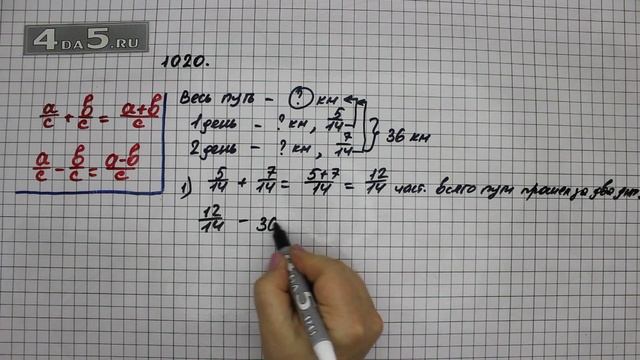 4DA5.RU
1020.
a/c + b/c = a+b/c
a/c - b/c = a-b/c
Весь путь - ? км
1 день - ? км, 5/14
2 день - ? км, 7/14
36 км
1) 5/14 + 7/14 = 5+7/14 = 12/14 част. всего пути прошел за два дня.
12/14 - 36
4DA5